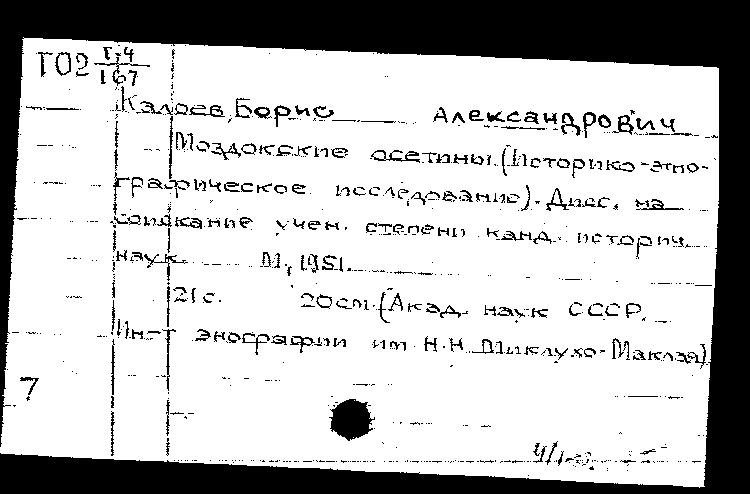 ТО2 Г,4
167
Калоев, Борис Александрович
Моздокские осетины. (Историко-этно-
графическое исследование). Дисс. на
соискание учен. степени канд. историч.
наук. М., 1951.
21с. 20см. (Акад. наук СССР.
Ин-т энографии им Н.Н. Миклухо-Маклая)
7